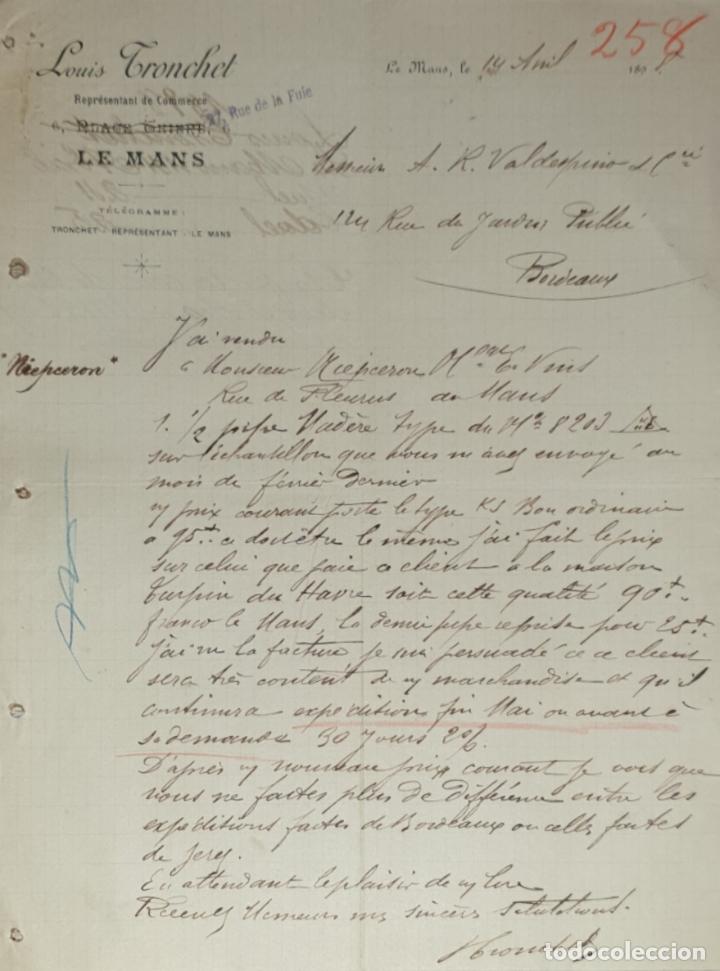 258
Louis Tronchet
Le Mans, le 14 Avril 189
Représentant de Commerce
27, Rue de la Fuie
6, PLACE GRIERE, 6
LE MANS
Messieurs A. R. Valdespino & Cie
TÉLÉGRAMME:
TRONCHET - REPRÉSENTANT - LE MANS
124 Rue du Jardin Public
Bordeaux
J'ai vendu
"Niepceron"
a Monsieur Niepceron Md de Vins
Rue de Fleurus au Mans
1. 1/2 pipe Madère type du No 8203
sur échantillon que vous m'avez envoyé au
mois de février dernier
v/ prix courant porte le type KS Bon ordinaire
a 95 f. a doit être le même j'ai fait le prix
sur celui que paie ce client a la maison
Turpin du Havre soit cette qualité 90 f.
franco le Mans, la demi pipe reprise pour 25 f.
j'ai vu la facture je suis persuadé ce client
sera très content de v/ marchandise et qu'il
continuera expédition fin Mai ou avant à
sa demande 30 jours 2%.
D'après v/ nouveau prix courant je vois que
vous ne faites plus de différence entre les
expéditions faites de Bordeaux ou celles faites
de Jerez.
En attendant le plaisir de v/ lire
Recevez Messieurs mes sincères salutations.
Tronchet
todocoleccion